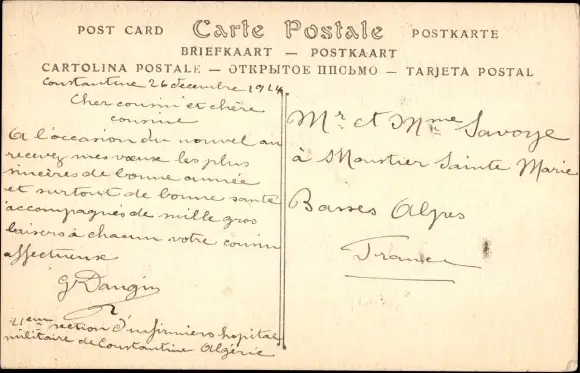 POST CARD Carte Postale POSTKARTE
BRIEFKAART — POSTKAART
CARTOLINA POSTALE — ОТКРЫТОЕ ПИСЬМО — TARJETA POSTAL
Constantine 26 decembre 1914
Cher cousin et chère
cousine
A l'occasion du nouvel an
recevez mes vœux les plus
sincères de bonne année
et surtout de bonne santé
accompagnés de mille gros
baisers à chacun votre cousin
affectueux
G Dangin
2 ieme section d'infirmiers hopital
militaire de Constantine Algérie
Mr. et Mme Savoye
à Moustier Sainte Marie
Basses Alpes
France